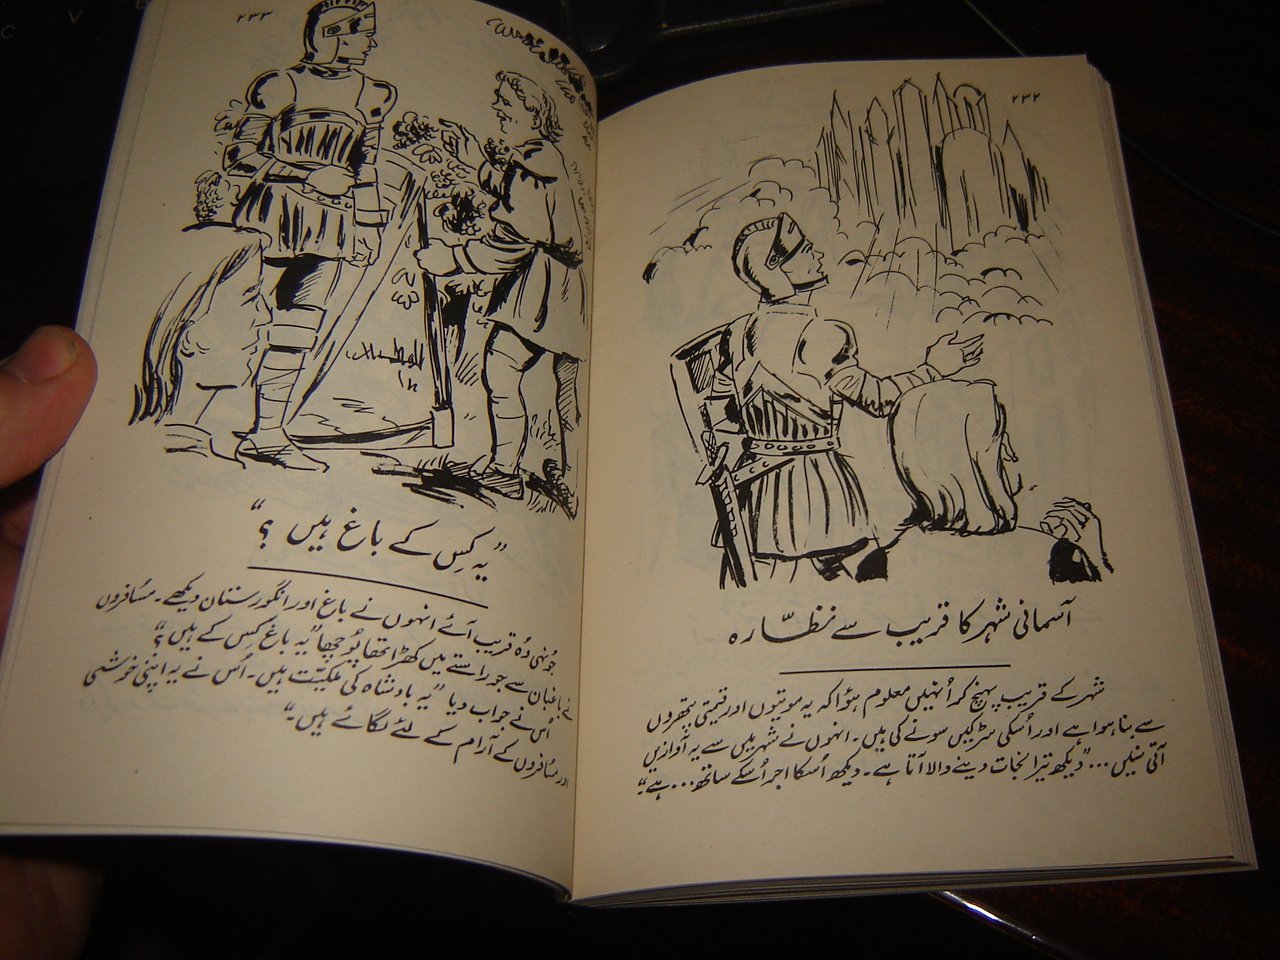 ۲۳۲
آسمانی شہر کا قریب سے نظّارہ
شہر کے قریب پہنچ کر اُنہیں معلوم ہؤا کہ یہ موتیوں اور قیمتی پتھروں
سے بنا ہوا ہے اور اُسکی سڑکیں سونے کی ہیں۔ انہوں نے شہر میں سے یہ آوازیں
آتی سُنیں... "دیکھ تیرا نجات دینے والا آتا ہے۔ دیکھ اُسکا اجر اُسکے ساتھ... ہے"
۲۳۳
"یہ کِس کے باغ ہیں؟"
جُونہی وُہ قریب آئے انہوں نے باغ اور انگورستان دیکھے۔ مسُافروں
نے باغبان سے جو راستے میں کھڑا تھا پُوچھا "یہ باغ کِس کے ہیں؟"
اُس نے جواب دیا "یہ بادشاہ کی ملکیّت ہیں۔ اُس نے یہ اپنی خوشی
اور مسُافروں کے آرام کے لئے لگائے ہیں۔"